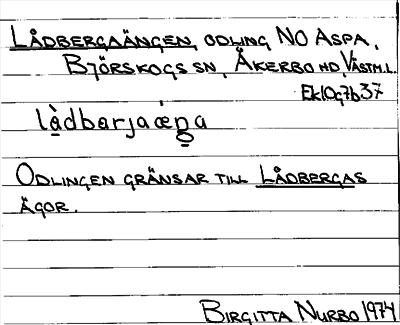 LÅDBERGAÄNGEN, ODLING NO ASPA,
BJÖRSKOGS SN, ÅKERBO HD, VÄSTM.L.
Ek10g7b37
lå̀dbærjaǽŋa
ODLINGEN GRÄNSAR TILL LÅDBERGAS
ÄGOR.
BIRGITTA NURBO 1974